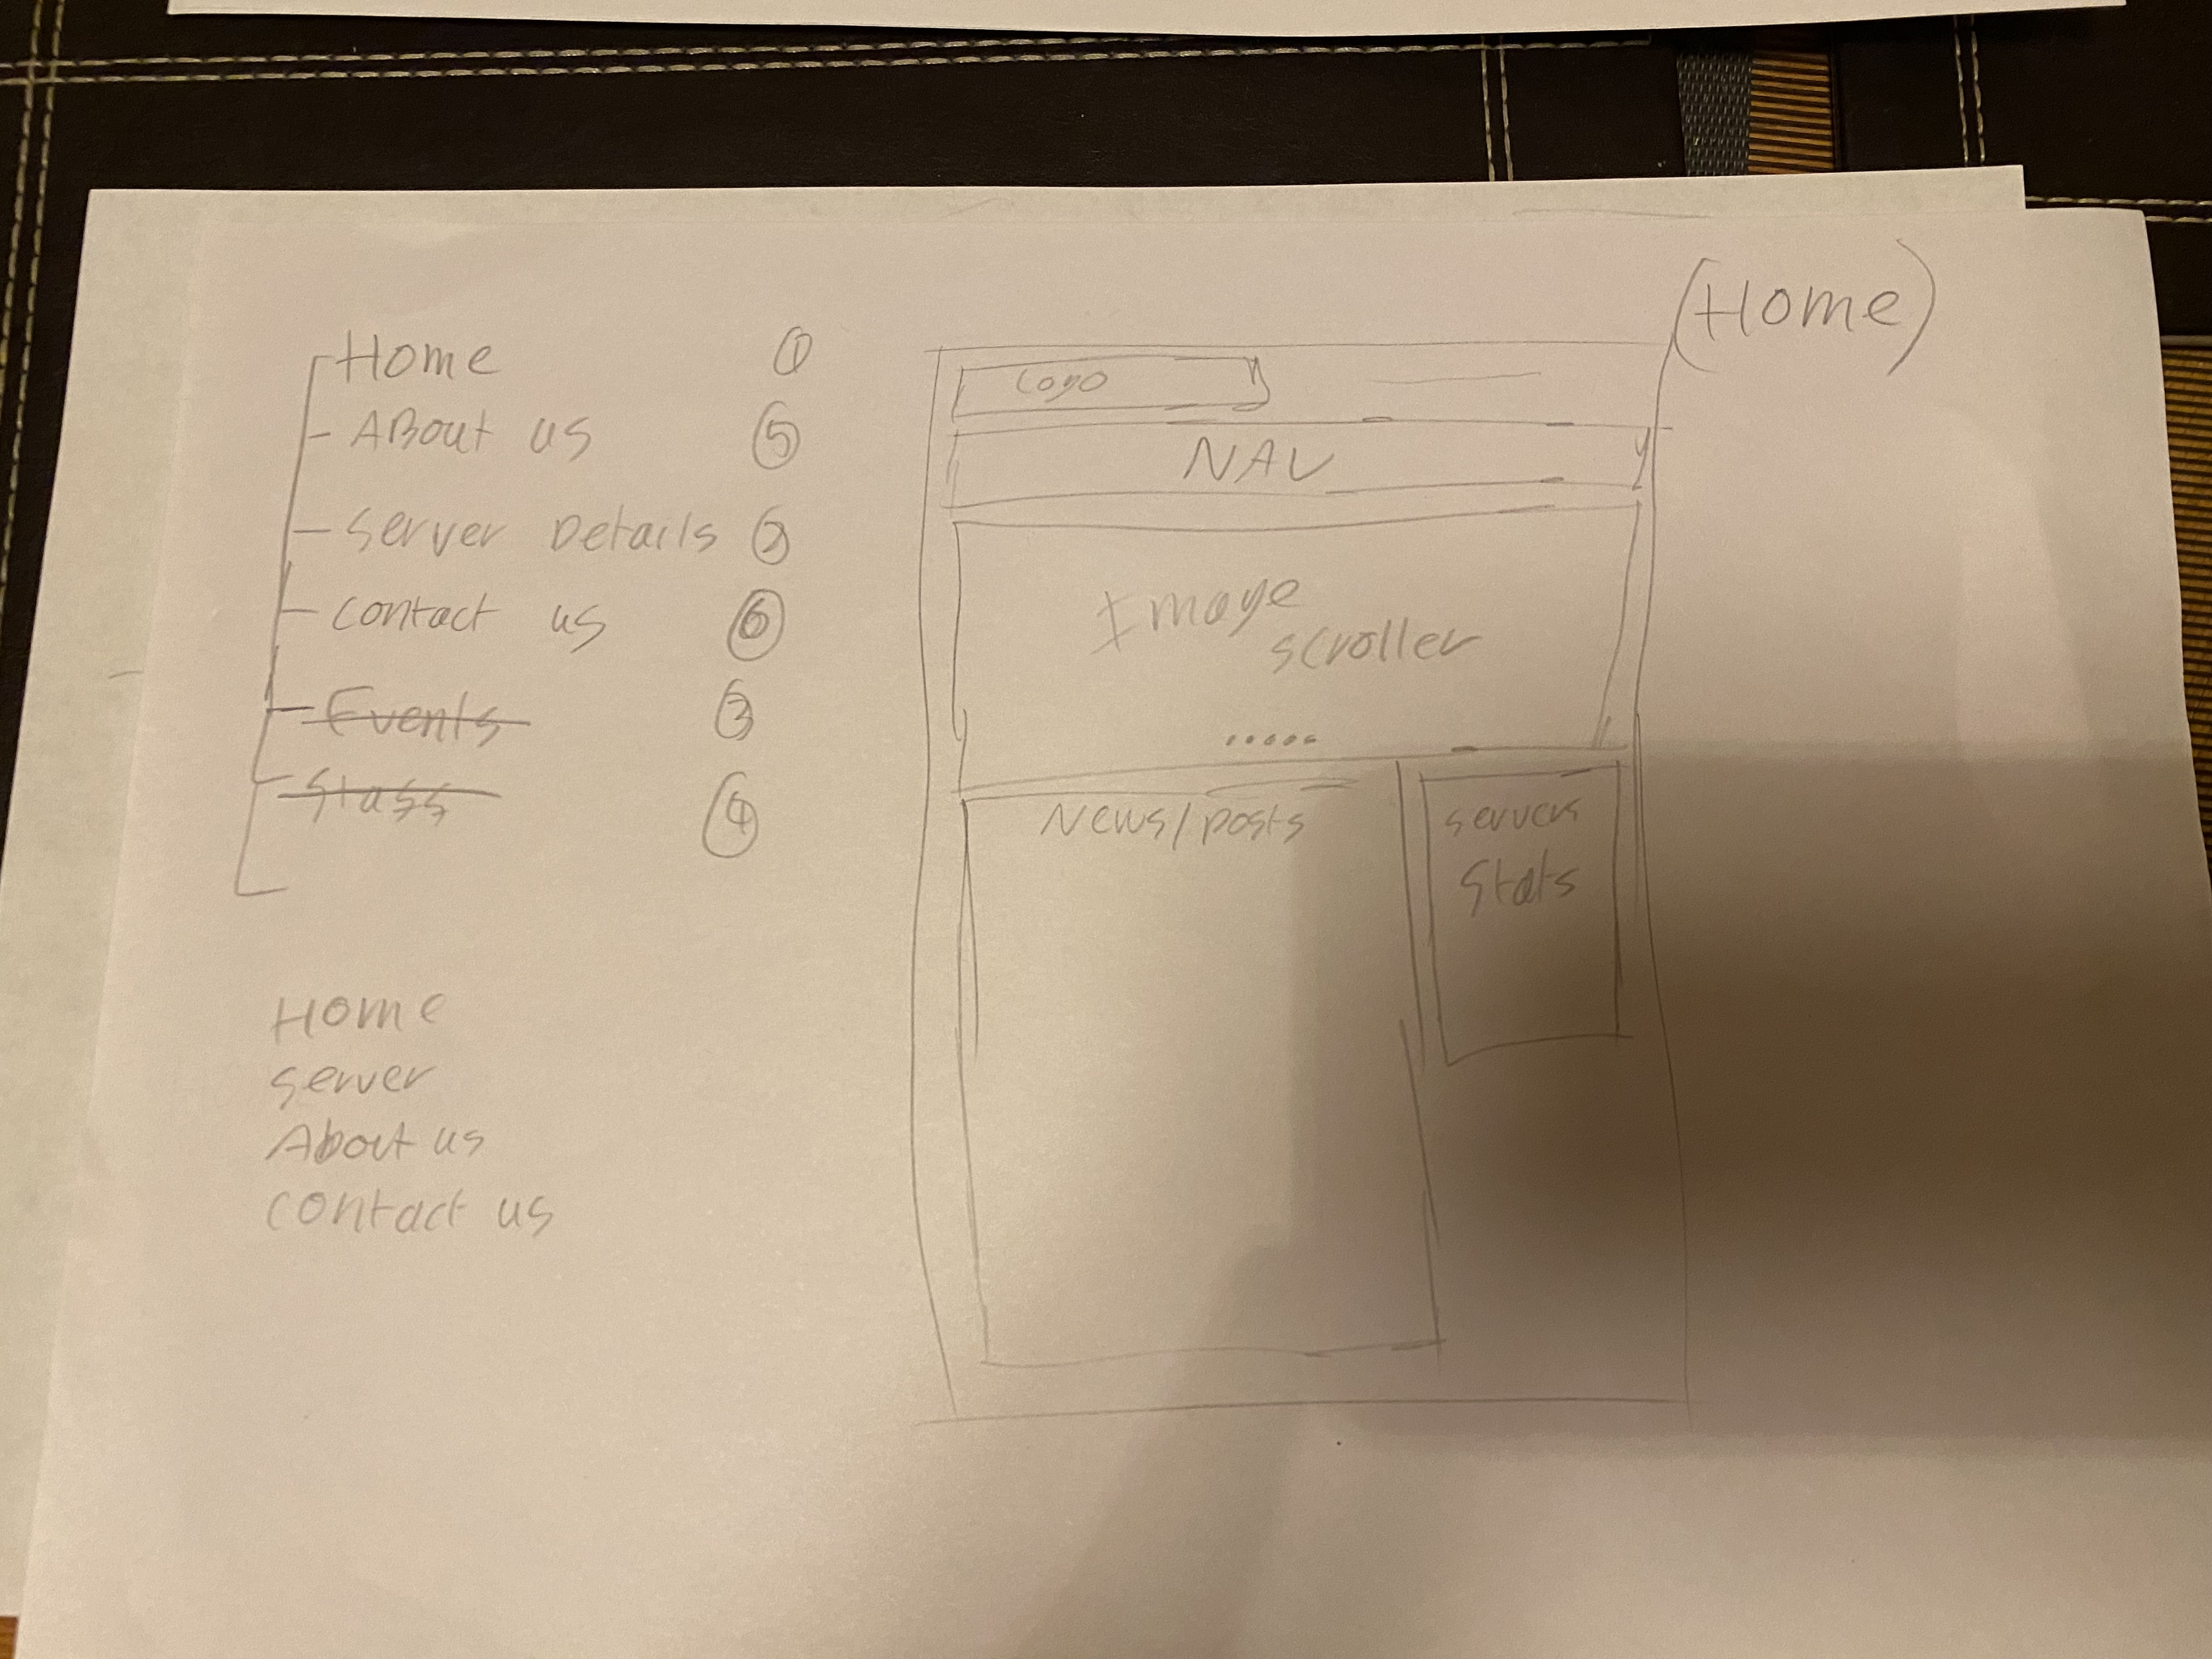 (Home)
Home 1
ABout us 5
Server Details 2
contact us 6
Events 3
Staff 4
Home
server
About us
contact us
Logo
NAV
Image
scroller
News/posts
servers
Stats